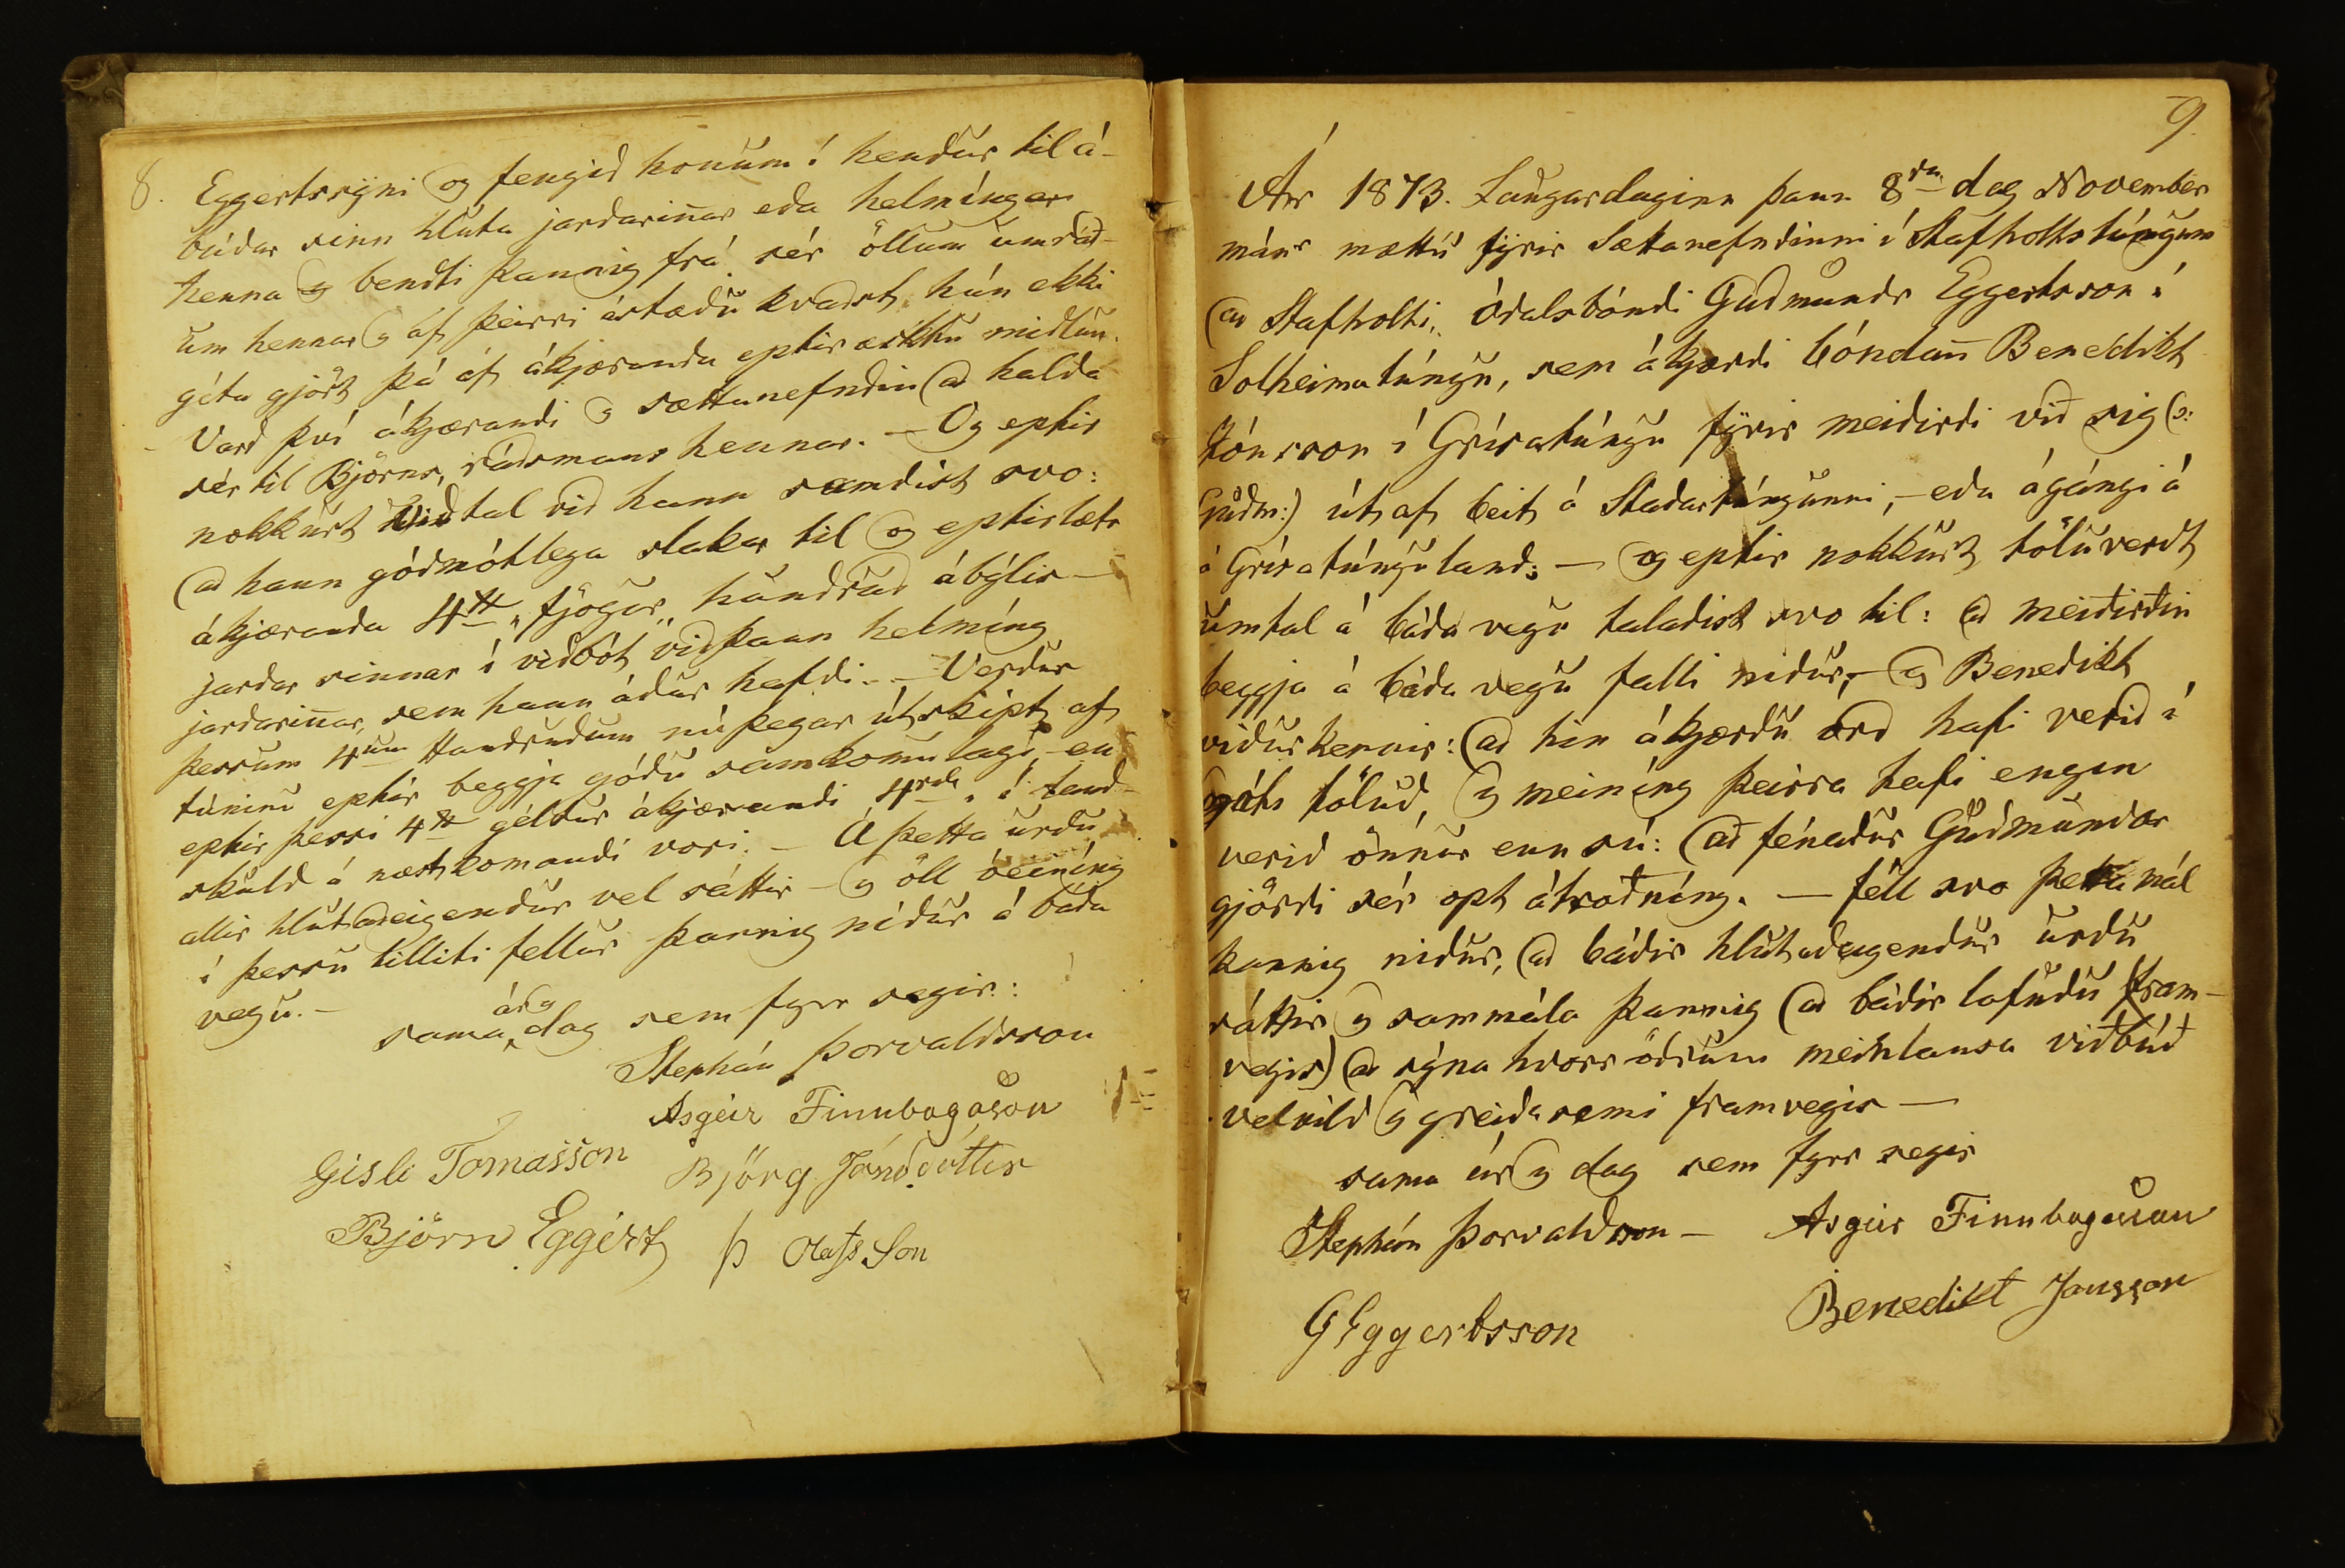 8. Eggertssÿni og fengid honum í hendur til á-
búdar sinn hluta jardarin̄ar eda helmíngar
henna og bendti þannig frá sér öllum umráð-
um hennar og af þeirri ástædu kvadst hún ekki
géta gjört þá af ákjæranda eptir æsktu midlun.
Vard því ákjærandi og sættanefndin ad halda
sér til Björns, rádsmans hennar. – Og eptir
nokkurt viðtal vid hann samdist svo:
ad hann gódmótlega slakar til og eptirlætr
ákjæranda 4 „fjögur„ hundrud ábýlis-
jardar sinnar í vidbót vid þann helmíng
jardarin̄ar, sem hann ádur hafdi. – Verdur
þessum 4um Hundrudum nú þegar útskipt af
túninu eptir beggja gódu samkomulagi, en
eptir þessi 4 géldur ákjærandi í land-
skuld á næstkomandi vori. – Á þetta urdu
allir hlutadeigendur vel sáttir – og öll óeiníng
í þessu tilliti fellur þannig nidur á báda
vegu. –
ár og
sama dag sem fyrr segir:
Stephán Þorvaldsson
Asgeir Finnbogason
Gisli Tomasson Björg Jónsdóttir
Björn Eggért Þ Olafs Son
9.
Ár 1873. Laugardaginn þann 8da dag November
mánr mættu fÿrir Sættanefndinni í Stafholtstúngum
ad Stafholti, ódalsbóndi Gudmundr Eggertsson í
Solheimatúngu, sem ákjærdi bóndan̄ Benedikt
Jónsson í Grísatúngu fÿrir meidirdi við sig (o:
Gudm:) út af beit á Stadartúngunni, – eda ágángi á
á Grísatúnguland; – og eptir nokkurt töluverdt
umtal á báda vegu taladist svo til: ad meidirdin
beggja á báda vegu falli nidur, – og Benedikt
vidurkennir: ad hin ákjærdu ord hafi verid í
gáts tölud, og meiníng þeirra hafi engin
verid önnur enn sú: að fénadur Gudmundar
gjördi sér opt átrodníng. – féll svo þetta mál
þannig nidur, ad bádir hlutadeigendur urdu
sáttir og sammála þannig (ad bádir lofudu fram-
vegis) ad sýna hvorr ödrum meinlausa viðbúð
velvild og greidasemi framvegis –
sama ár og dag sem fyrr segir
Stephán Þorvaldsson – Asgeir Finnbogason
G Eggertsson Benedikt Jonsson